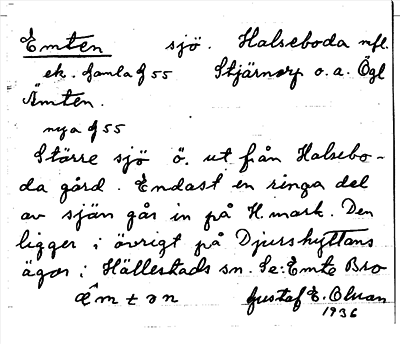 Emten sjö. Halseboda mfl.
ek. gamla g 55 Stjärnorp o. a. Ögl
Ämten.
nya g 55
Större sjö ö. ut från Halsebo-
da gård. Endast en ringa del
av sjön går in på H. mark. Den
ligger i övrigt på Djurshyttans
ägor i Hällestads sn. Se: Emte Bro
Gustaf E. Olsson
1936